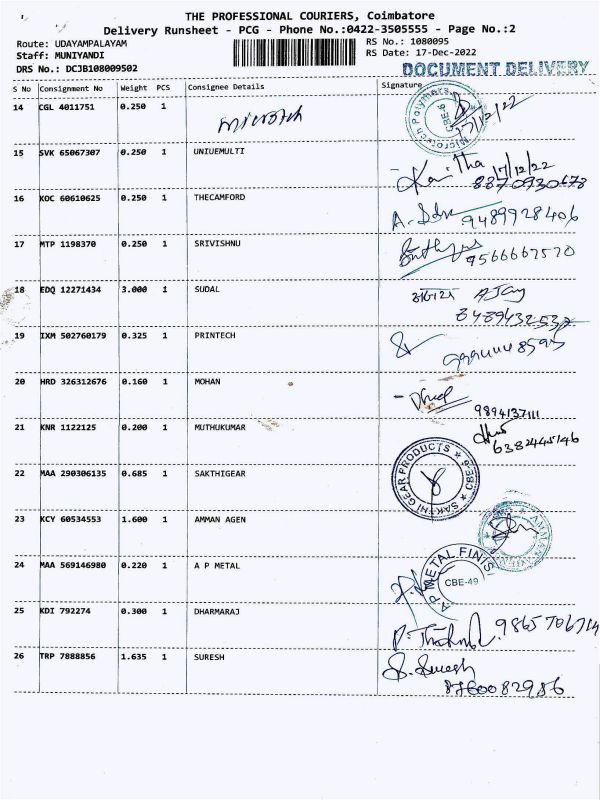 THE PROFESSIONAL COURIERS, Coimbatore
Delivery Runsheet - PCG - Phone No.:0422-3505555 - Page No.:2
Route: UDAYAMPALAYAM
RS No.: 1080095
Staff: MUNIYANDI
RS Date: 17-Dec-2022
DRS No.: DCJB108009502
DOCUMENT DELIVERY
S No Consignment No Weight PCS Consignee Details Signature
14 CGL 4011751 0.250 1
Microtech Polymers CBE-6
17/12/22
15 SVK 65067307 0.250 1 UNIUEMULTI
17/12/22
8870930678
16 KOC 60610625 0.250 1 THECAMFORD
9489928406
17 MTP 1198370 0.250 1 SRIVISHNU
9566667570
18 EDQ 12271434 3.000 1 SUDAL
AJay
19 IXM 502760179 0.325 1 PRINTECH
20 HRD 326312676 0.160 1 MOHAN
9894137111
21 KNR 1122125 0.200 1 MUTHUKUMAR
6382445146
22 MAA 290306135 0.685 1 SAKTHIGEAR
SAKTHI GEAR PRODUCTS
23 KCY 60534553 1.600 1 AMMAN AGEN
24 MAA 569146980 0.220 1 A P METAL
A.P METAL FINIS
CBE-49
25 KDI 792274 0.300 1 DHARMARAJ
26 TRP 7888856 1.635 1 SURESH
S. Suresh
8760082986